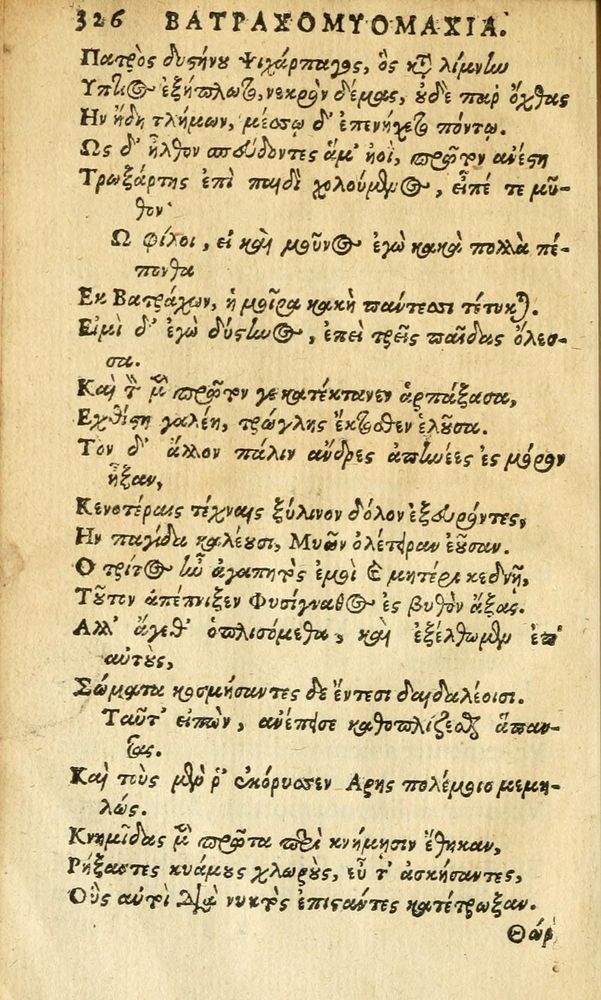 326 ΒΑΤΡΑΧΟΜΥΟΜΑΧΙΑ.
Πατρὸς δυστήνου Ψιχάρπαγος, ὃς κατὰ λίμνην
Υπτιος ἐξήπλωται, νεκρὸν δέμας, οὐδὲ παρ' ὄχθας
Ην ἤδη τλήμων, μέσσῳ δ' ἐπενήχετο πόντῳ.
Ως δ' ἦλθον σπεύδοντες ἅμ' ἠοῖ, πρῶτον ἀνέστη
Τρωξάρτης ἐπὶ παιδὶ χολούμενος, εἶπέ τε μῦ-
θον·
Ω φίλοι, εἰ καὶ μοῦνος ἐγὼ κακὰ πολλὰ πέ-
πονθα
Εκ Βατράχων, ἡ μοῖρα κακὴ πάντεσσι τέτυκται.
Εἰμὶ δ' ἐγὼ δύστηνος, ἐπεὶ τρεῖς παῖδας ὄλεσ-
σα.
Καὶ τὸν μὲν πρῶτόν γε κατέκτανεν ἁρπάξασα,
Εχθίστη γαλέη, τρώγλης ἔκτοσθεν ἑλοῦσα.
Τὸν δ' ἄλλον πάλιν ἄνδρες ἀπηνέες ἐς μόρον
ἦξαν,
Κενοτέραις τέχναις ξύλινον δόλον ἐξευρόντες,
Ην παγίδα καλέουσι, Μυῶν ὀλέτειραν ἐοῦσαν.
Ο τρίτος ἦν ἀγαπητὸς ἐμοὶ καὶ μητέρι κεδνῇ,
Τοῦτον ἀπέπνιξεν Φυσίγναθος ἐς βυθὸν ἄξας.
Αλλ' ἄγεθ' ὁπλισόμεθα, καὶ ἐξέλθωμεν ἐπ'
αὐτοὺς,
Σώματα κοσμήσαντες δὲ ἔντεσι δαιδαλέοισι.
Ταῦτ' εἰπὼν, ἀνέπεισε καθοπλίζεσθαι ἅπαν-
τας.
Καὶ τοὺς μὲν ῥ' ἐκόρυσσεν Αρης πολέμοιο μεμη-
λώς.
Κνημῖδας μὲν πρῶτα περὶ κνήμησιν ἔθηκαν,
Ρήξαντες κυάμους χλωροὺς, εὖ τ' ἀσκήσαντες,
Οὓς αὐτοὶ διὰ νυκτὸς ἐπιστάντες κατέτρωξαν.
Θώρ